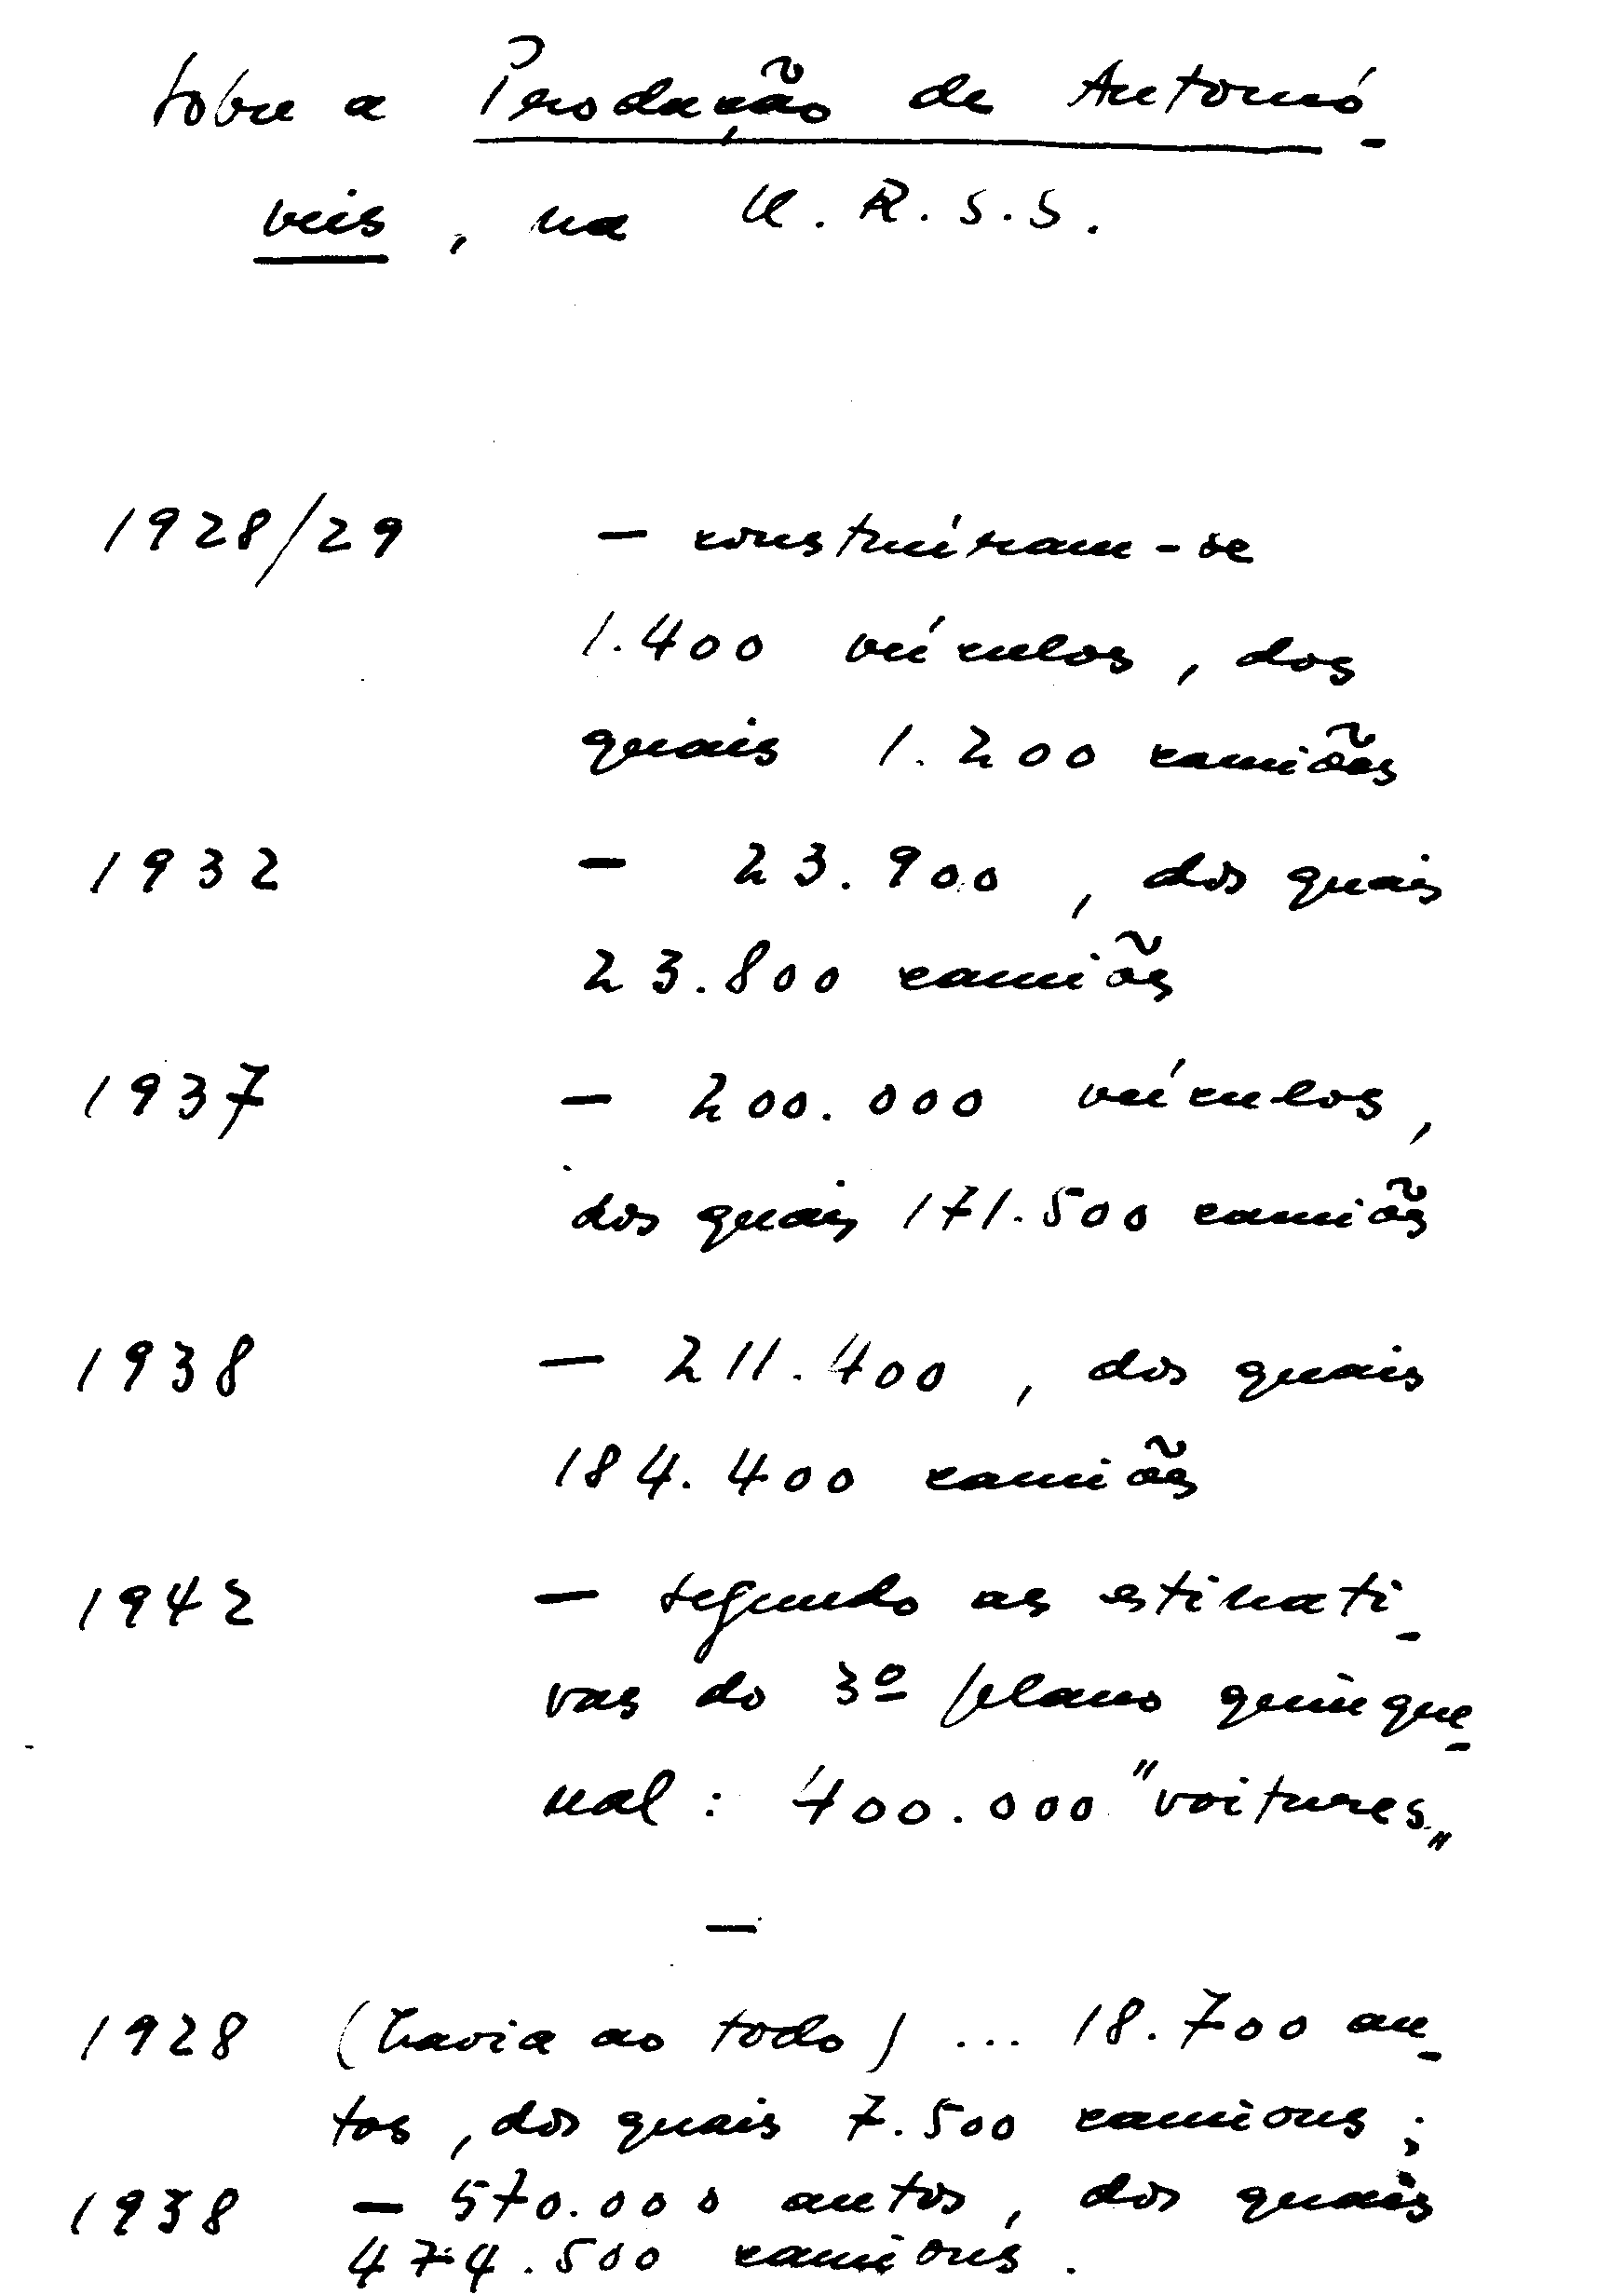 Sobre a Produção de Automó-
veis, na U.R.S.S.
1928/29 — construíram-se
1.400 veículos, dos
quais 1.200 camiões
1932 — 23.900, dos quais
23.800 camiões
1937 — 200.000 veículos,
dos quais 171.500 camiões
1938 — 211.400, dos quais
184.400 camiões
1942 — segundo as estimati-
vas do 3º plano quinque-
nal: 400.000 "voitures"
—
1928 (havia ao todo) ... 18.700 au-
tos, dos quais 7.500 camions;
1938 — 570.000 autos, dos quais
474.500 camions.